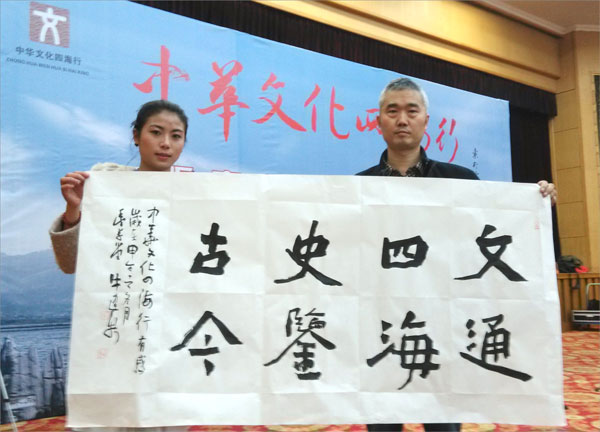 中华文化四海行
CHUNG HUA WEN HUA SI HAI XING
中華文化四 行
文通
四海
史鑒
古今
中華文化四海行有感